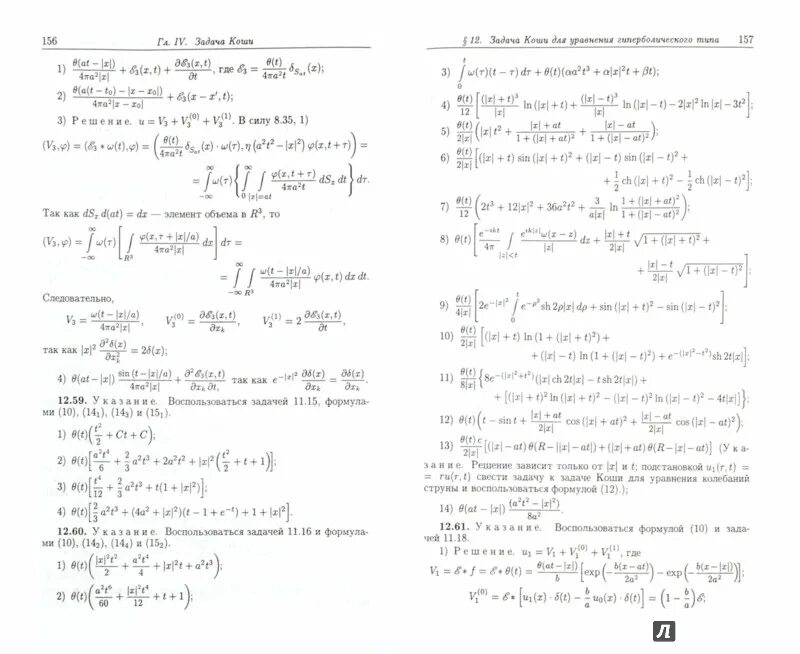 156 Гл. IV. Задача Коши
1) θ(at − |x|)/(4πa²|x|) + ℰ₃(x, t) + ∂ℰ₃(x, t)/∂t, где ℰ₃ = θ(t)/(4πa²t) δ_{S_{at}}(x);
2) θ(a(t − t₀) − |x − x₀|)/(4πa²|x − x₀|) + ℰ₃(x − x′, t);
3) Решение. u = V₃ + V₃⁽⁰⁾ + V₃⁽¹⁾. В силу 8.35, 1)
(V₃, φ) = (ℰ₃ * ω(t), φ) = (θ(t)/(4πa²t) δ_{S_{at}}(x) · ω(τ), η(a²t² − |x|²) φ(x, t + τ)) =
= ∫_{−∞}^{∞} ω(τ) {∫_{0}^{∞} ∫_{|x|=at} φ(x, t + τ)/(4πa²t) dS_x dt} dτ.
Так как dS_x d(at) = dx — элемент объема в R³, то
(V₃, φ) = ∫_{−∞}^{∞} ω(τ) [∫_{R³} φ(x, τ + |x|/a)/(4πa²|x|) dx] dτ =
= ∫_{−∞}^{∞} ∫_{R³} ω(t − |x|/a)/(4πa²|x|) φ(x, t) dx dt.
Следовательно,
V₃ = ω(t − |x|/a)/(4πa²|x|), V₃⁽⁰⁾ = ∂ℰ₃(x, t)/∂x_k, V₃⁽¹⁾ = 2 ∂ℰ₃(x, t)/∂t,
так как |x|² ∂²δ(x)/∂x_k² = 2δ(x);
4) θ(at − |x|) sin(t − |x|/a)/(4πa²|x|) + ∂²ℰ₃(x, t)/∂x_k ∂t, так как e^{−|x|²} ∂δ(x)/∂x_k = ∂δ(x)/∂x_k.
12.59. Указание. Воспользоваться задачей 11.15, формула-
ми (10), (14₁), (14₃) и (15₁).
1) θ(t)(t²/2 + Ct + C);
2) θ(t)[a²t⁴/6 + 2/3 a²t³ + 2a²t² + |x|²(t²/2 + t + 1)];
3) θ(t)[t⁴/12 + 2/3 a²t³ + t(1 + |x|²)];
4) θ(t)[2/3 a²t³ + (4a² + |x|²)(t − 1 + e^{−t}) + 1 + |x|²].
12.60. Указание. Воспользоваться задачей 11.16 и формула-
ми (10), (14₂), (14₄) и (15₂).
1) θ(t)(|x|²t²/2 + a²t⁴/4 + |x|²t + a²t³);
2) θ(t)(a²t⁶/60 + |x|²t⁴/12 + t + 1);
§ 12. Задача Коши для уравнения гиперболического типа 157
3) ∫_{0}^{t} ω(τ)(t − τ) dτ + θ(t)(αa²t³ + α|x|²t + βt);
4) θ(t)/12 [(|x| + t)³/|x| ln(|x| + t) + (|x| − t)³/|x| ln||x| − t| − 2|x|² ln|x| − 3t²];
5) θ(t)/(2|x|) (|x|t² + (|x| + at)/(1 + (|x| + at)²) + (|x| − at)/(1 + (|x| − at)²));
6) θ(t)/(2|x|) [(|x| + t) sin(|x| + t)² + (|x| − t) sin(|x| − t)² +
+ 1/2 ch(|x| + t)² − 1/2 ch(|x| − t)²];
7) θ(t)/12 (2t³ + 12|x|² + 36a²t² + 3/(a|x|) ln (1 + (|x| + at)²)/(1 + (|x| − at)²));
8) θ(t)[e^{−ikt}/4π ∫_{|z|<t} e^{ik|z|}ω(x − z)/|z| dz + (|x| + t)/(2|x|) √(1 + (|x| + t)²) +
+ (|x| − t)/(2|x|) √(1 + (|x| − t)²)];
9) θ(t)/(4|x|) [2e^{−|x|²} ∫_{0}^{t} e^{−ρ²} sh 2ρ|x| dρ + sin(|x| + t)² − sin(|x| − t)²];
10) θ(t)/(2|x|) [(|x| + t) ln(1 + (|x| + t)²) +
+ (|x| − t) ln(1 + (|x| − t)²) + e^{−(|x|²−t²)} sh 2t|x|];
11) θ(t)/(8|x|) {8e^{−(|x|²+t²)}(|x| ch 2t|x| − t sh 2t|x|) +
+ [(|x| + t)² ln(|x| + t)² − (|x| − t)² ln(|x| − t)² − 4t|x|]};
12) θ(t)(t − sin t + (|x| + at)/(2|x|) cos(|x| + at)² + (|x| − at)/(2|x|) cos(|x| − at)²);
13) θ(t)c/(2|x|) [(|x| − at)θ(R − ||x| − at|) + (|x| + at)θ(R − |x| − at)] (Ука-
зание. Решение зависит только от |x| и t; подстановкой u₁(r, t) =
= ru(r, t) свести задачу к задаче Коши для уравнения колебаний
струны и воспользоваться формулой (12).);
14) θ(at − |x|) (a²t² − |x|²)/8a².
12.61. Указание. Воспользоваться формулой (10) и зада-
чей 11.18.
1) Решение. u₁ = V₁ + V₁⁽⁰⁾ + V₁⁽¹⁾, где
V₁ = ℰ * f = ℰ * θ(t) = θ(at − |x|)/b [exp(−b(x − at)/2a²) − exp(−b(x − |x|)/2a²)];
V₁⁽⁰⁾ = ℰ * [u₁(x) · δ(t) − b/a u₀(x) · δ(t)] = (1 − b/a)ℰ;
Л